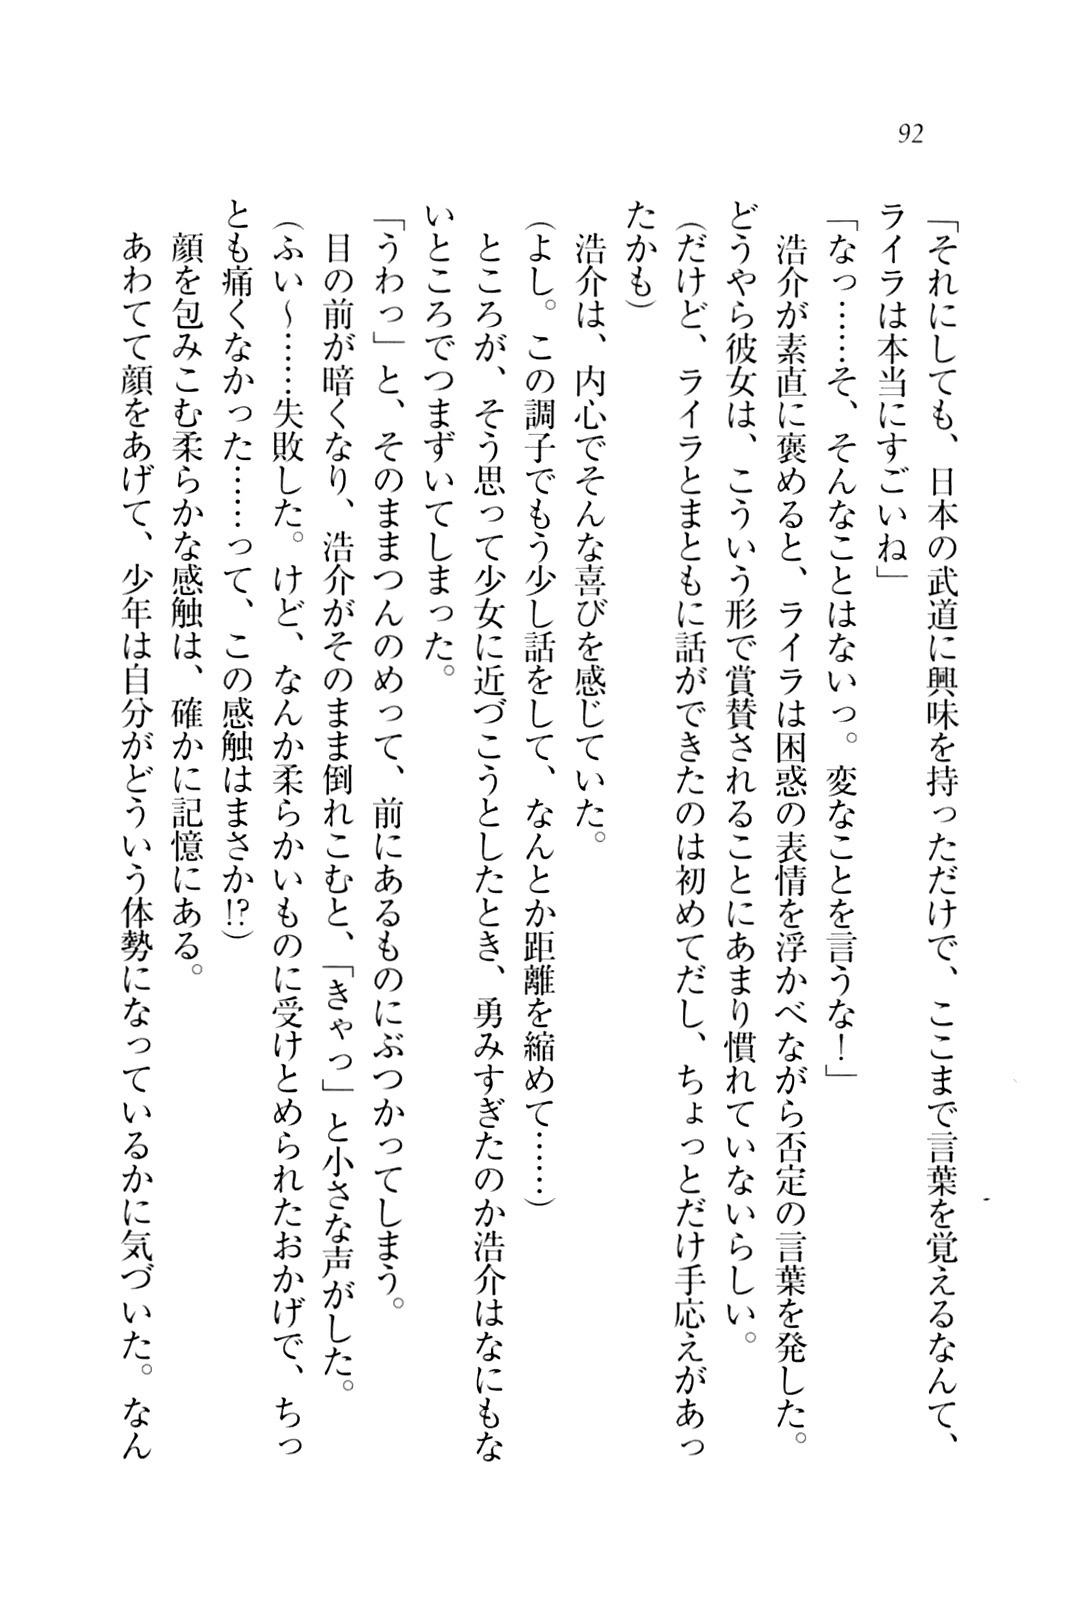 92
「それにしても、日本の武道に興味を持っただけで、ここまで言葉を覚えるなんて、
ライラは本当にすごいね」
「なっ……そ、そんなことはないっ。変なことを言うな！」
浩介が素直に褒めると、ライラは困惑の表情を浮かべながら否定の言葉を発した。
どうやら彼女は、こういう形で賞賛されることにあまり慣れていないらしい。
（だけど、ライラとまともに話ができたのは初めてだし、ちょっとだけ手応えがあっ
たかも）
浩介は、内心でそんな喜びを感じていた。
（よし。この調子でもう少し話をして、なんとか距離を縮めて……）
ところが、そう思って少女に近づこうとしたとき、勇みすぎたのか浩介はなにもな
いところでつまずいてしまった。
「うわっ」と、そのままつんのめって、前にあるものにぶつかってしまう。
目の前が暗くなり、浩介がそのまま倒れこむと、「きゃっ」と小さな声がした。
（ふい～……失敗した。けど、なんか柔らかいものに受けとめられたおかげで、ちっ
とも痛くなかった……って、この感触はまさか!?）
顔を包みこむ柔らかな感触は、確かに記憶にある。
あわてて顔をあげて、少年は自分がどういう体勢になっているかに気づいた。なん